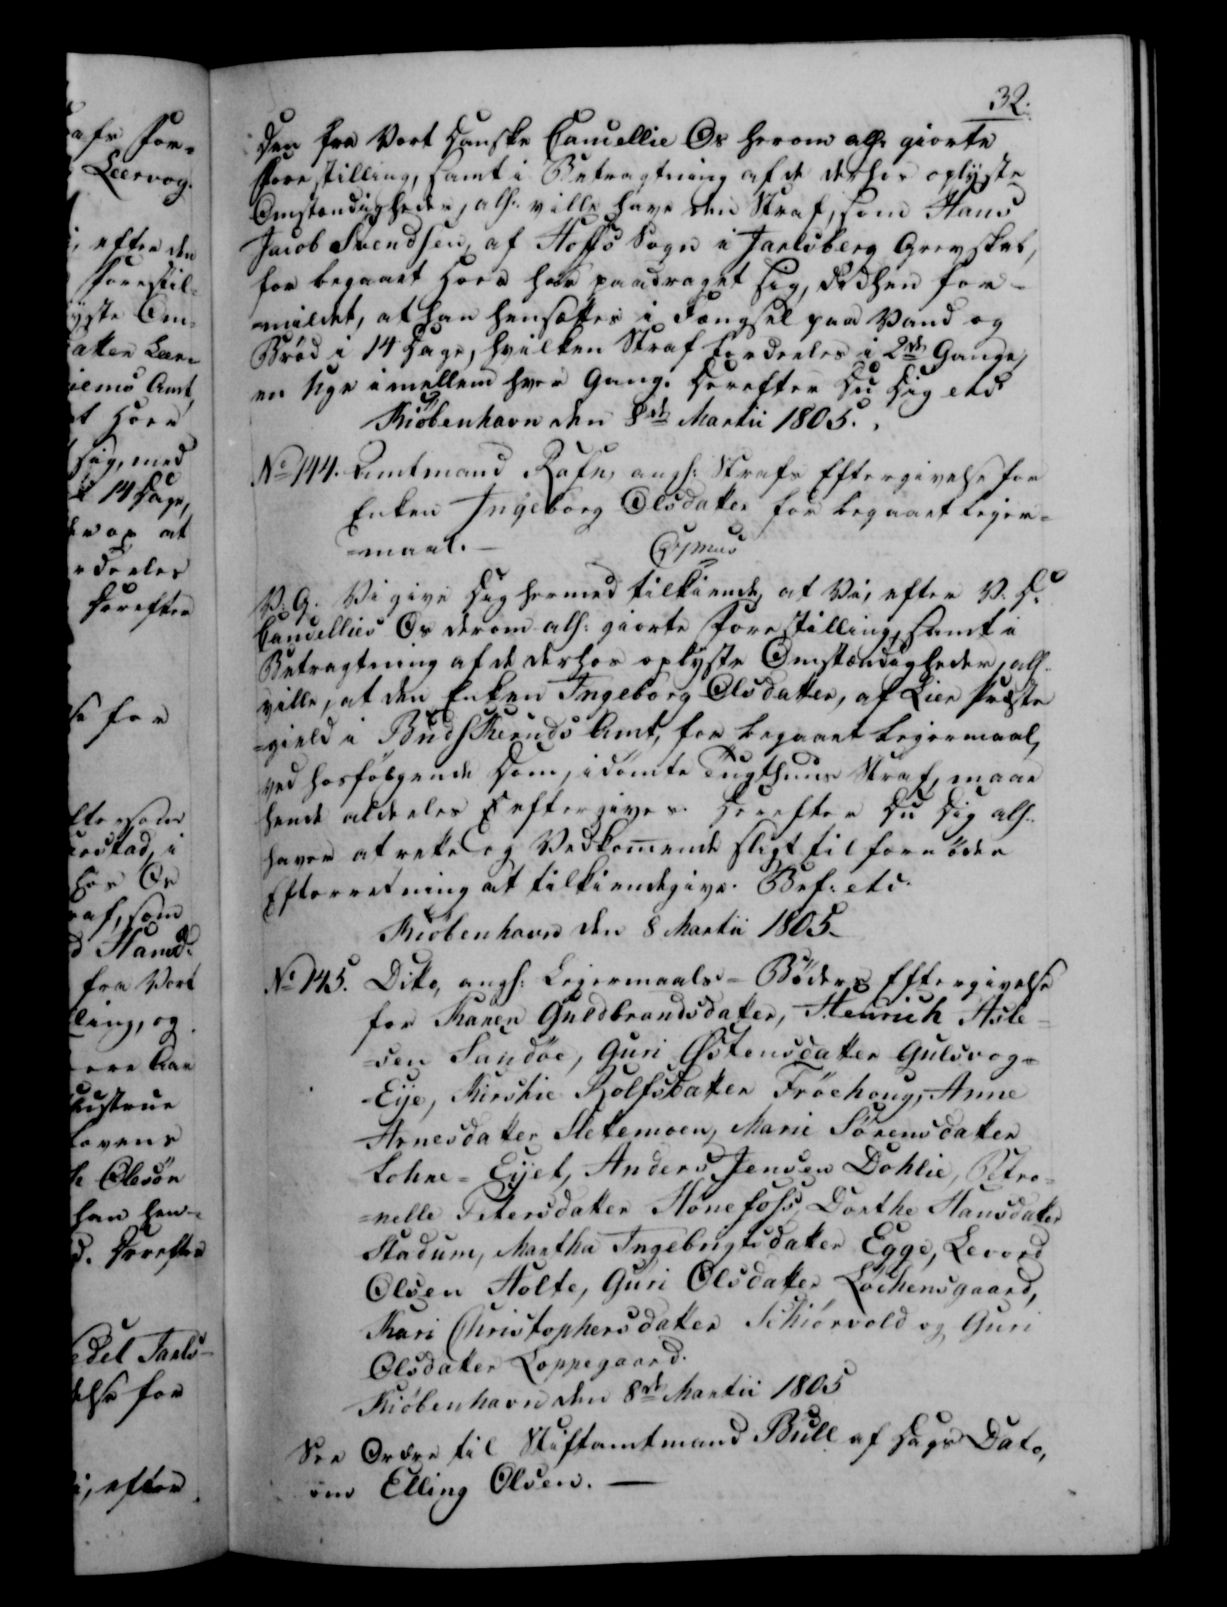 32.
den fra Vort Danske Cancellie Os herom alh. giorte
Forestilling, samt i Betragtning af de derhos oplyste
Omstændigheder, alh. ville have den Straf, som Hans
Jacob Svendsen, af Hoffs Sogn i Jarlsberg Grevskab,
for begaaet Hoer har paadraget sig, saadan for-
-mildet, at han hensættes i Fængsel paa Vand og
Brød i 14 Dage, hvilken Straf fordeeles i 2de Gange,
en Uge imellem hver Gang. Derefter Du Dig etc
Kiøbenhavn den 8de Martii 1805.
No 144. Amtmand angh: Strafs Eftergivelse for
Enken Ingeborg Olsdatter for begaaet Leyer-
-maal.-
V. G. Vi give Dig hermed tilkiende, at Vi, efter V. D.
Cancellies Os derom alh: giorte Forestilling, samt i
Betragtning af de derhos oplyste Omstændigheder, alh.
ville, at den Enken Ingeborg Olsdatter, af Lier Præste
-gield i Budskeruds Amt, for begaaet Leyermaal,
ved hosfølgende Dom, idømte Tugthuus Straf, maae
hende aldeeles eftergives. Derefter Du Dig alh.
haver at rette og Vedkom̄ende sligt til fornøden
Efterretning at tilkiendegive. Bef: etc.
Kiöbenhavn den 8 Martii 1805.
No 145. Dito, angh: Leyermaals-Bøders Eftergivelse
for Karen Guldbrandsdatter, Henrich Asle-
-sen Sandöe, Guri Østensdatter Gulsvog-
-Eje, Kirstie Rolfsdatter Fröehoug, Anne
Arnesdatter Sletemoen, Marie Sörensdatter
Lohne-Eijet, Anders Jensen Dohlie, Petro-
-nelle Petersdatter Hönefoss, Dorthe Hansdatter
Stadum, Martha Ingebrigtsdatter Egge, Levord
Olsen Holte, Guri Olsdatter Löchensgaard,
Kari Christophersdatter Schiörvold og Guri
Olsdatter Loppegaard.
Kiöbenhavn den 8de Martii 1805
See Ordre til Stiftamtmand Bull af Dags Dato,
om Elling Olsen. —